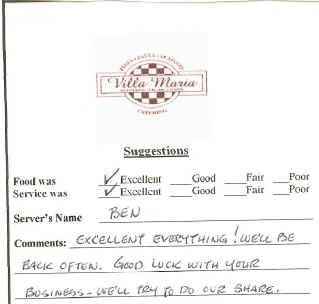 Villa Maria
CATERING
Suggestions
Food was ✓ Excellent ___Good ___Fair ___Poor
Service was ✓ Excellent ___Good ___Fair ___Poor
Server's Name BEN
Comments: EXCELLENT EVERYTHING! WE'LL BE
BACK OFTEN. GOOD LUCK WITH YOUR
BUSINESS - WE'LL TRY TO DO OUR SHARE.